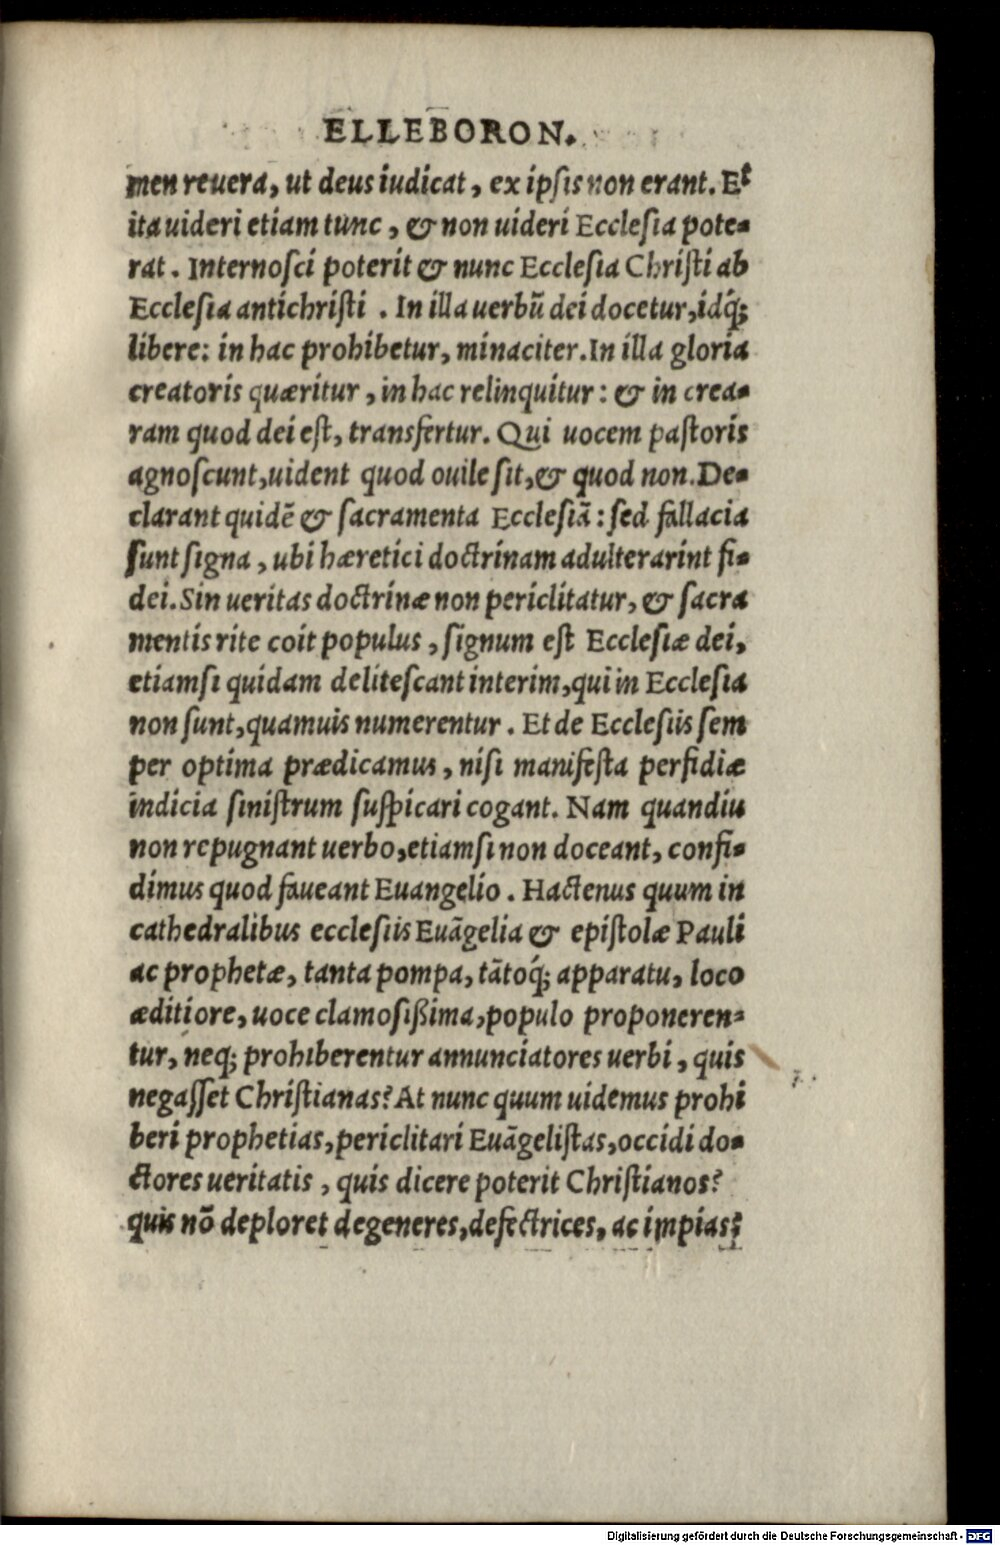 ELLEBORON.
men reuera, ut deus iudicat, ex ipſis non erant. Et
ita uideri etiam tunc, & non uideri Eccleſia pote-
rat. Internoſci poterit & nunc Eccleſia Chriſti ab
Eccleſia antichriſti . In illa uerbũ dei docetur, idq́;
libere: in hac prohibetur, minaciter. In illa gloria
creatoris quæritur, in hac relinquitur: & in crea-
ram quod dei eſt, transfertur. Qui uocem paſtoris
agnoſcunt, uident quod ouile ſit, & quod non. De-
clarant quidẽ & ſacramenta Eccleſiã: ſed fallacia
ſunt ſigna, ubi hæretici doctrinam adulterarint fi-
dei. Sin ueritas doctrinæ non periclitatur, & ſacra
mentis rite coit populus, ſignum eſt Eccleſiæ dei,
etiamſi quidam deliteſcant interim, qui in Eccleſia
non ſunt, quamuis numerentur. Et de Eccleſiis ſem
per optima prædicamus, niſi manifeſta perfidiæ
indicia ſiniſtrum ſuſpicari cogant. Nam quandiu
non repugnant uerbo, etiamſi non doceant, confi-
dimus quod faueant Euangelio. Hactenus quum in
cathedralibus eccleſiis Euãgelia & epiſtolæ Pauli
ac prophetæ, tanta pompa, tãtoq́; apparatu, loco
æditiore, uoce clamoſißima, populo proponeren-
tur, neq; prohiberentur annunciatores uerbi, quis
negaſſet Chriſtianas? At nunc quum uidemus prohi
beri prophetias, periclitari Euãgeliſtas, occidi do-
ctores ueritatis, quis dicere poterit Chriſtianos?
quis nõ deploret degeneres, defectrices, ac impias?
Digitalisierung gefördert durch die Deutsche Forschungsgemeinschaft - DFG